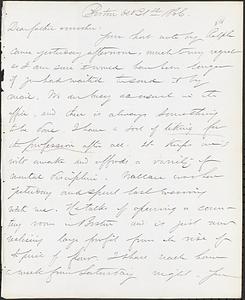 Boston Oct 31st 1866.
Dear father & mother:
Your last note by Ralph
came yesterday afternoon, much sooner
as I am sure it would have been longer
if you had waited to send it by
mail. We are busy as usual in the
office, and there is always something
to be done. I have a sort of liking for
the profession after all. It keeps one's
wits awake and affords a variety of
mental discipline. Wallace was here
yesterday and spent last evening
with me. He talks of opening a
room in Boston and is just now
realizing large profit from the rise of
the price of flour. I shall reach home
a week from Saturday night. You